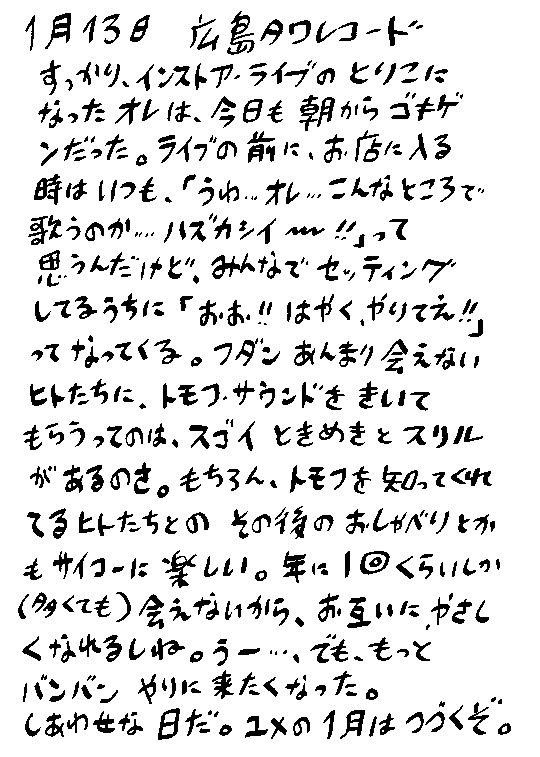 1月13日 広島タワレコード
すっかり、インストア・ライブの とりこに
なった オレは、今日も 朝から ゴキゲ
ンだった。ライブの 前に、お店に入る
時は いつも、「うわ…オレ…こんなところで
歌うのか…ハズカシイ〜!!」って
思うんだけど、みんなで セッティング
してるうちに「おぉ!! はやく、やりてえ!!」
って なってくる。フダン あんまり 会えない
ヒトたちに、トモフ・サウンドを きいて
もらうってのは、スゴイ ときめきと スリル
が あるのさ。もちろん、トモフを 知ってくれ
てる ヒトたちとの その後の おしゃべりとか
も サイコーに 楽しい。年に 1回くらいしか
(多くても) 会えないから、お互いに、やさし
くなれるしね。うー…、でも、もっと
バンバン やりに 来たくなった。
しあわせな 日だ。ユメの 1月は つづくぞ。